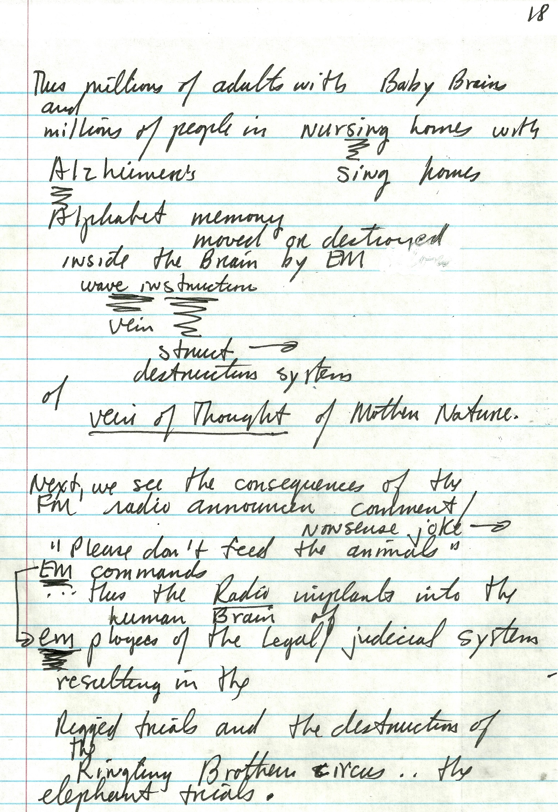 18
Thus millions of adults with Baby Brains
and
millions of people in nursing homes with
Alzheimer's sing homes
Alphabet memory
moved or destroyed
inside the Brain by EM
wave instruction
vein
struct →
destruction system
of
vein of Thought of Mother Nature.
Next, we see the consequences of the
FM radio announcer comment/
nonsense joke →
"Please don't feed the animals"
EM commands
... thus the Radio implants into the
human Brain of
employees of the legal/judicial system
resulting in the
Rigged trials and the destruction of
the
Ringling Brothers circus .. the
elephant trials.